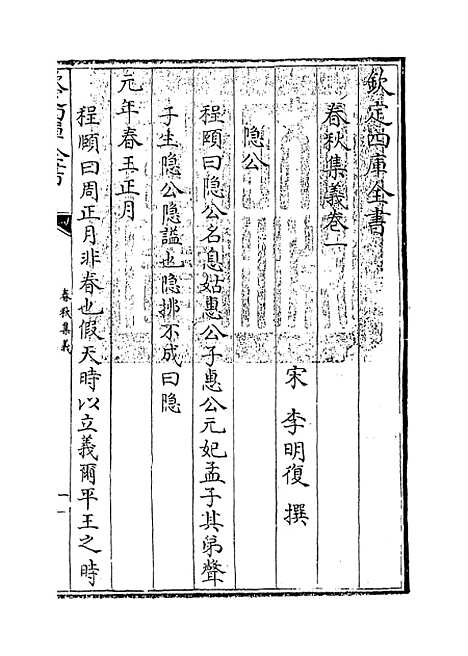 欽定四庫全書
春秋集義卷一
宋 李明復 撰
隠公
程頤曰隠公名息姑惠公子惠公元妃孟子其弟聲
子生隠公隠謚也隠拂不成曰隠
元年春王正月
程頤曰周正月非春也假天時以立義爾平王之時
春秋集義
一